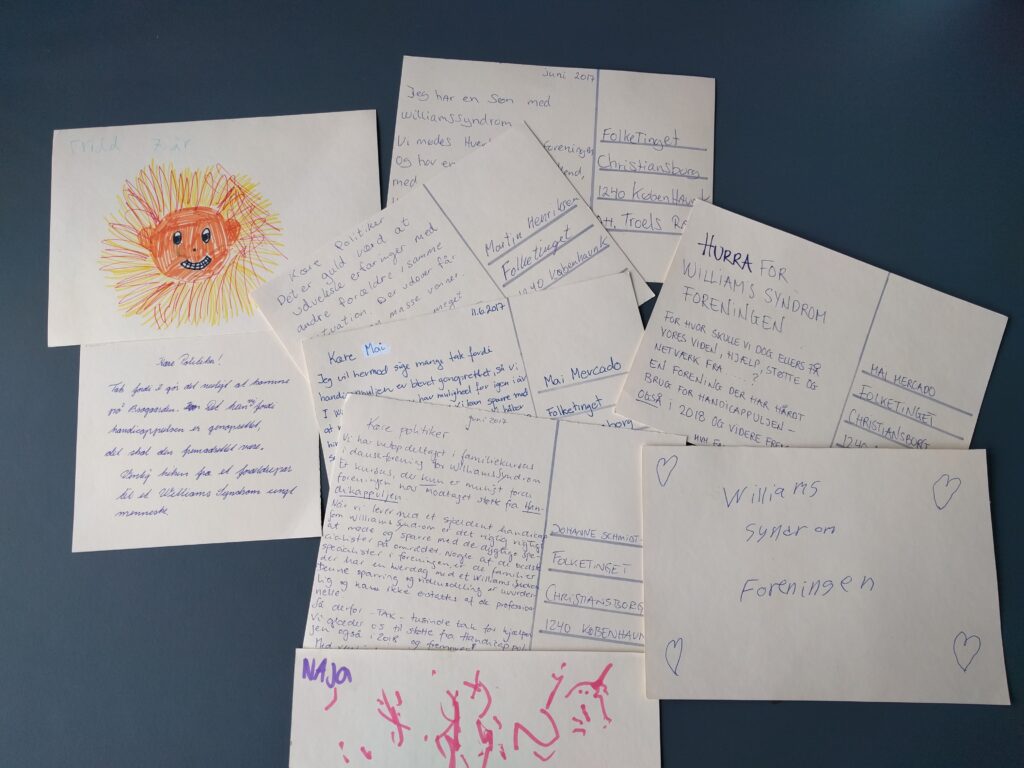 7 år
Juni 2017
Jeg har en søn med
Williams Syndrom
Vi mødes Hver
foreningen
og har en
med
Folketinget
Christiansborg
1240 København K
Att. Troels
Kære Politiker
Det er guld værd at
udveksle erfaringer med
andre forældre i samme
situation. Der udover får
en masse venner.
meget
Martin Henriksen
Folketinget
1240 København K
HURRA FOR
WILLIAMS SYNDROM
FORENINGEN
FOR HVOR SKULLE VI DOG ELLERS FÅ
VORES VIDEN, HJÆLP, STØTTE OG
NETVÆRK FRA ....?
EN FORENING DER HAR HÅRDT
BRUG FOR HANDICAPPULJEN –
OGSÅ I 2018 OG VIDERE FREM
MAI MERCADO
FOLKETINGET
CHRISTIANSBORG
1240
11.6.2017
Kære Mai
Jeg vil hermed sige mange tak fordi
handicappuljen er blevet genoprettet, så vi
har mulighed for igen i år
vi kan sparre med
håber
Mai Mercado
Folketinget
borg
Kære Politiker!
Tak fordi I gør det muligt at komme
på Brogården. Det kan fordi
handicappuljen er genoprettet,
det skal den fremadrettet være.
Venlig hilsen fra et forældrepar
til et Williams Syndrom ungt
menneske
juni 2017
Kære politiker
Vi har netop deltaget i familiekursus
i dansk forening for Williams Syndrom
Et kursus, der kun er muligt fordi
foreningen har modtaget støtte fra Han-
dikappuljen
Når vi lever med et sjældent handicap
som Williams Syndrom er det rigtig vigtigt
at møde og sparre med de dygtige spe-
cialister på området. Nogle af de bedste
specialister i foreningen, er de familier
der har en hverdag med et Williams Syndrom
Denne sparring og vidensdeling er uvurder-
lig og kan ikke erstattes af de professio-
nelle
Så derfor - TAK - tusinde tak for hjælpen
Vi glæder os til støtte fra Handicappul-
jen også i 2018 og fremover
JOHANNE SCHMIDT-
FOLKETINGET
CHRISTIANSBORG
1240 KØBENHAVN
Williams
Syndrom
Foreningen
NAJA